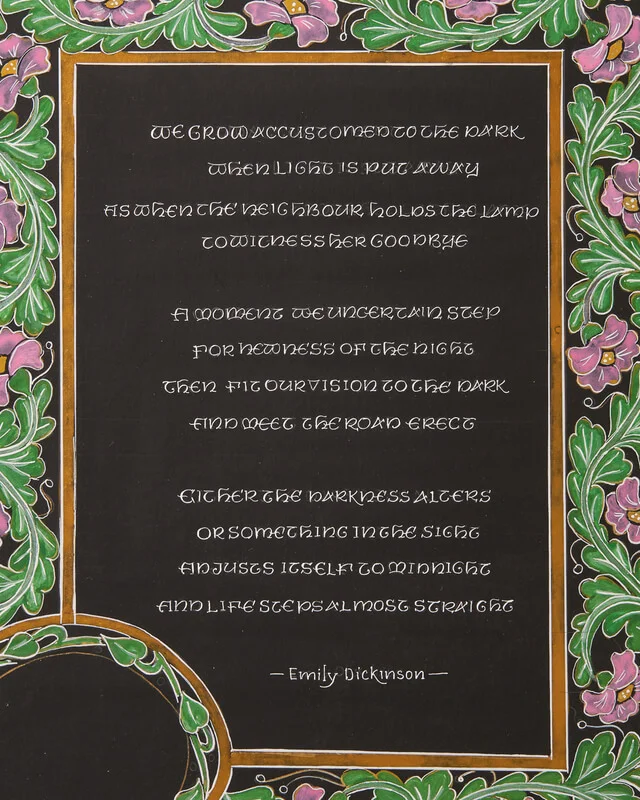 WE GROW ACCUSTOMED TO THE DARK
WHEN LIGHT IS PUT AWAY
AS WHEN THE NEIGHBOUR HOLDS THE LAMP
TO WITNESS HER GOODBYE
A MOMENT WE UNCERTAIN STEP
FOR NEWNESS OF THE NIGHT
THEN FIT OUR VISION TO THE DARK
AND MEET THE ROAD ERECT
EITHER THE DARKNESS ALTERS
OR SOMETHING IN THE SIGHT
ADJUSTS ITSELF TO MIDNIGHT
AND LIFE STEPS ALMOST STRAIGHT
— Emily Dickinson —